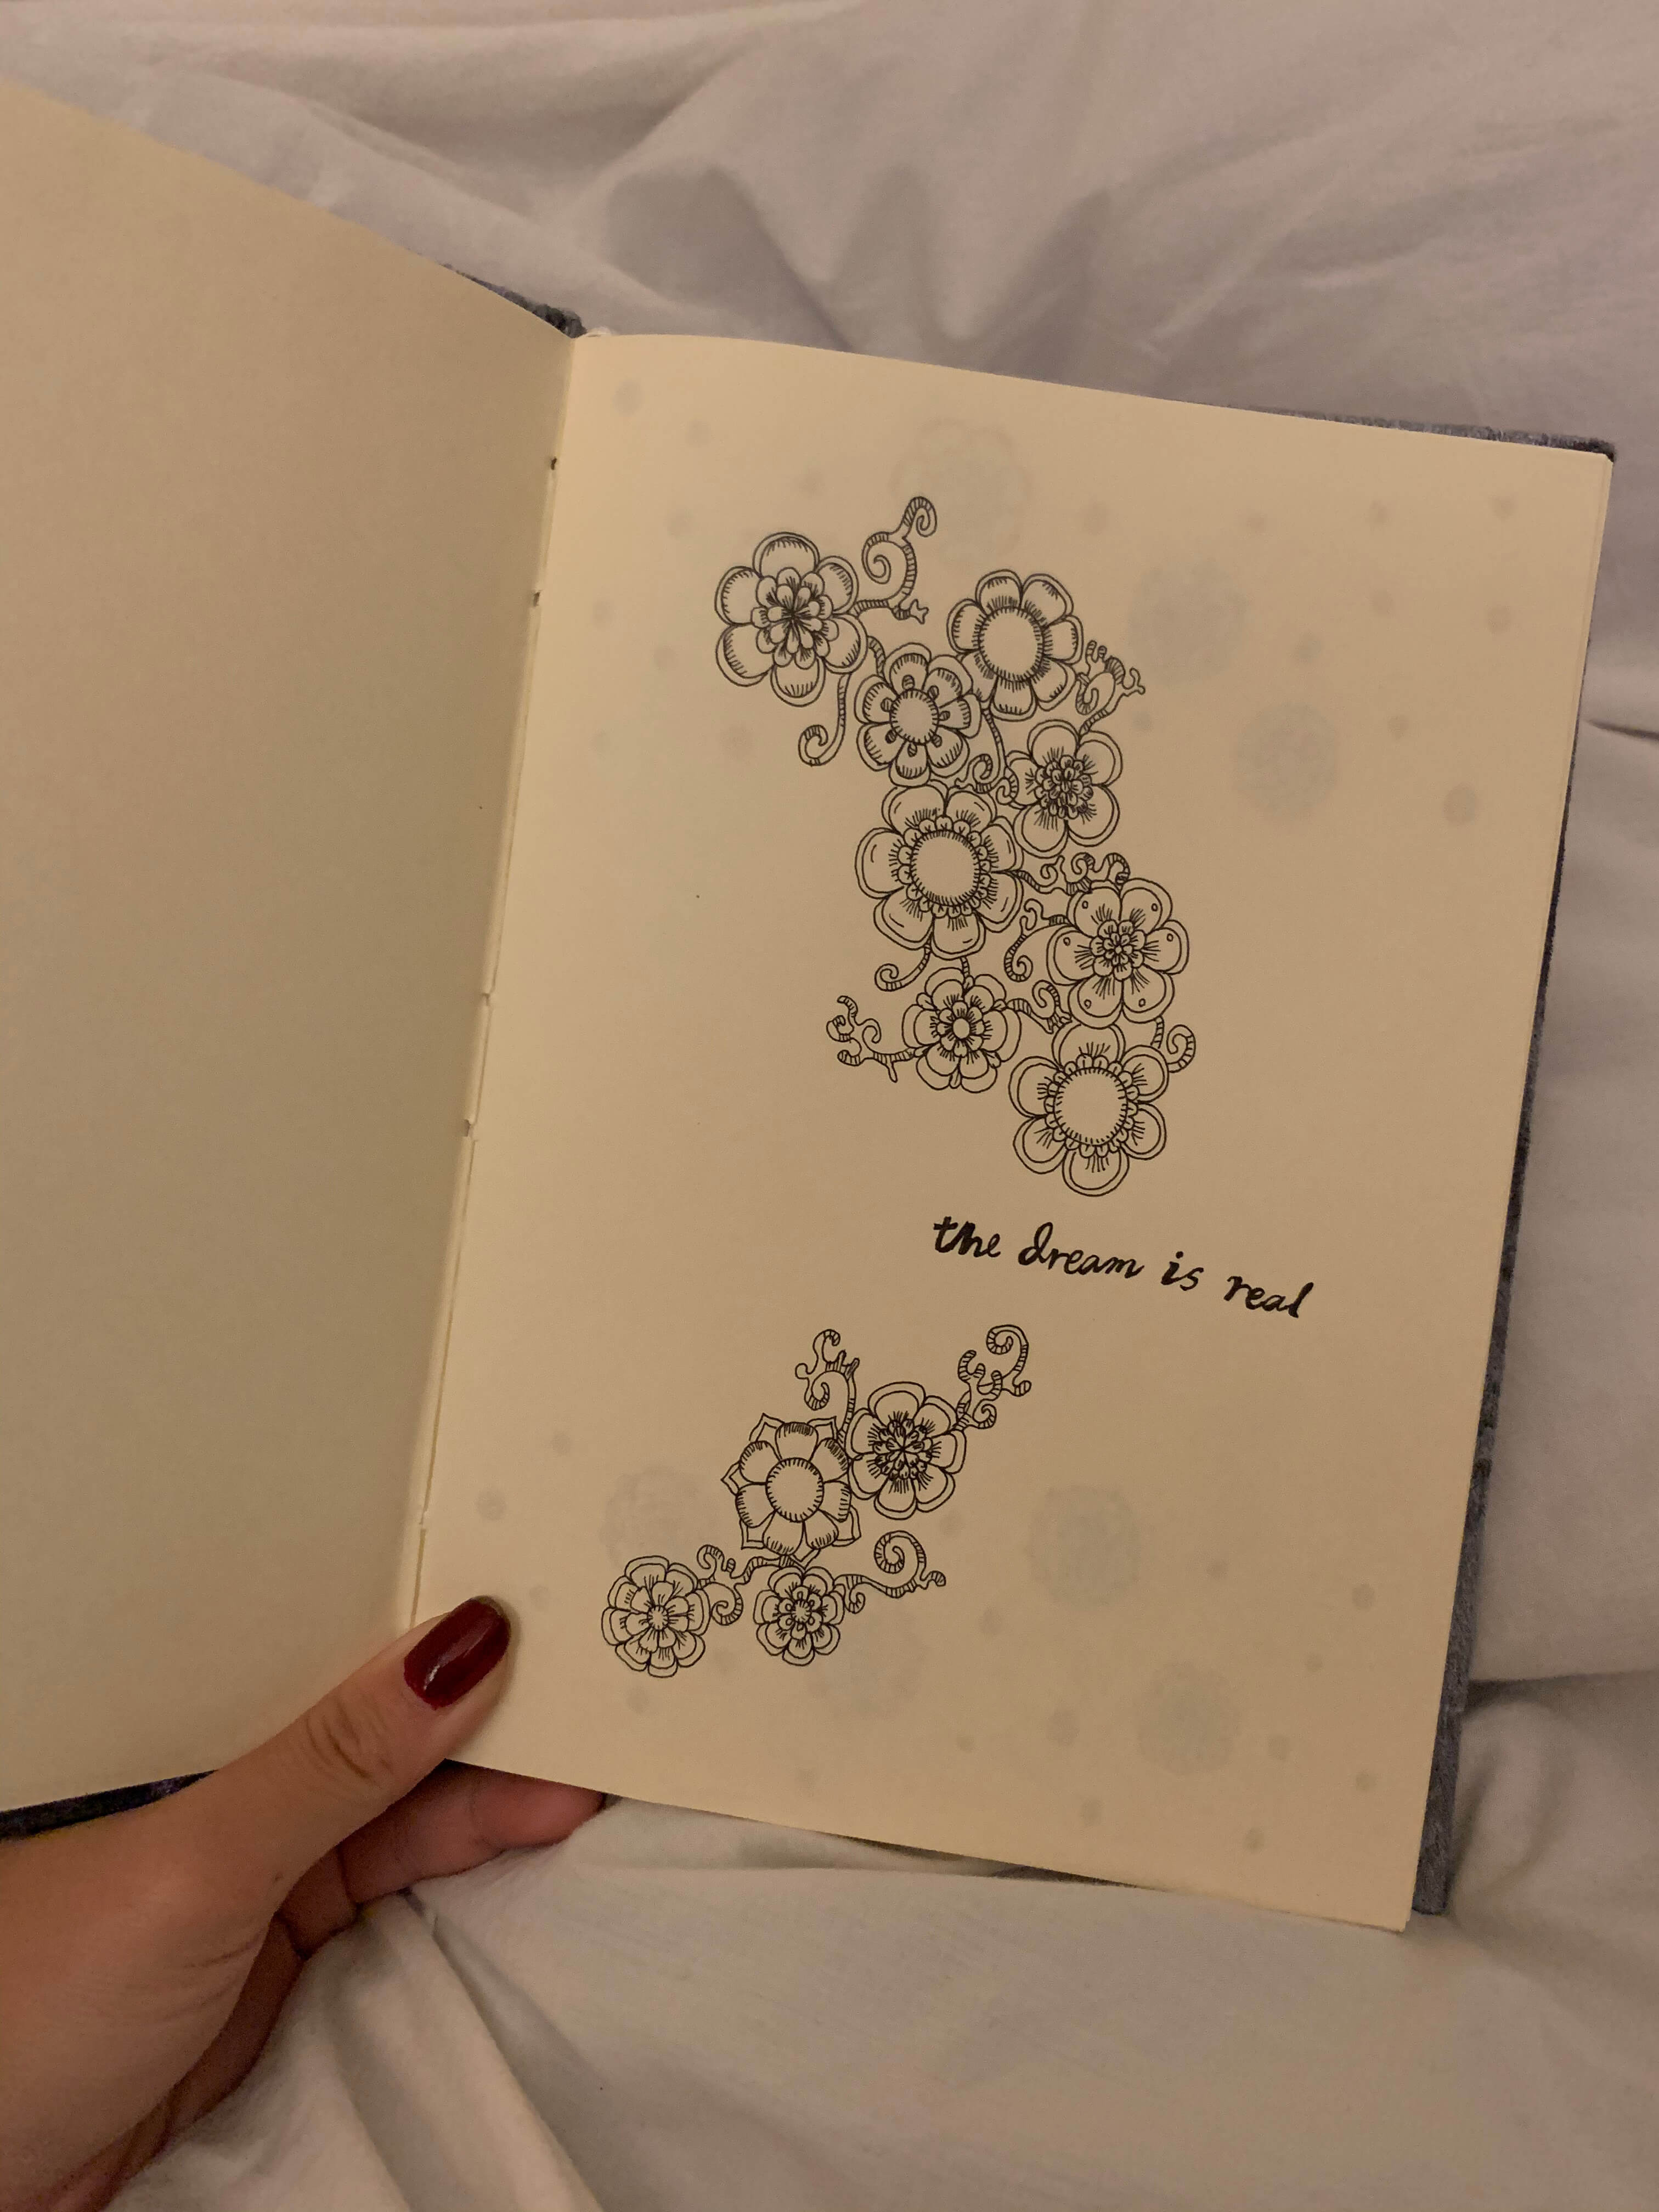 the dream is real